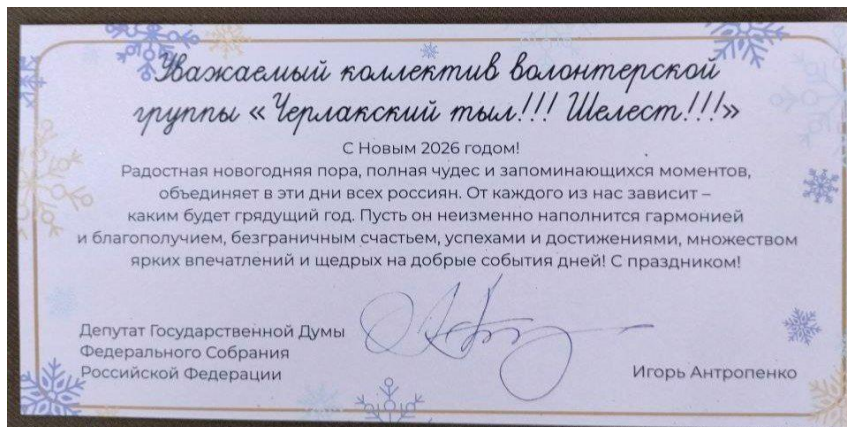 Уважаемый коллектив волонтерской
группы «Черлакский тыл!!! Шелест!!!»
С Новым 2026 годом!
Радостная новогодняя пора, полная чудес и запоминающихся моментов,
объединяет в эти дни всех россиян. От каждого из нас зависит –
каким будет грядущий год. Пусть он неизменно наполнится гармонией
и благополучием, безграничным счастьем, успехами и достижениями, множеством
ярких впечатлений и щедрых на добрые события дней! С праздником!
Депутат Государственной Думы
Федерального Собрания
Российской Федерации
Игорь Антропенко